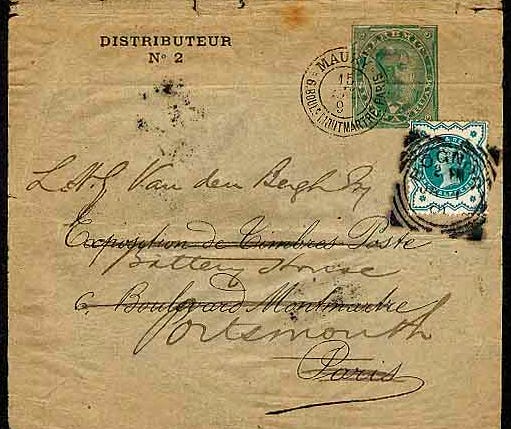 DISTRIBUTEUR
No 2
MAURY
6 BOULD MONTMARTRE PARIS
15
9
L. N. G. Van den Bergh Esq
Exposition de Timbres Poste
Battery House
6 Boulevard Montmartre
Portsmouth
Paris